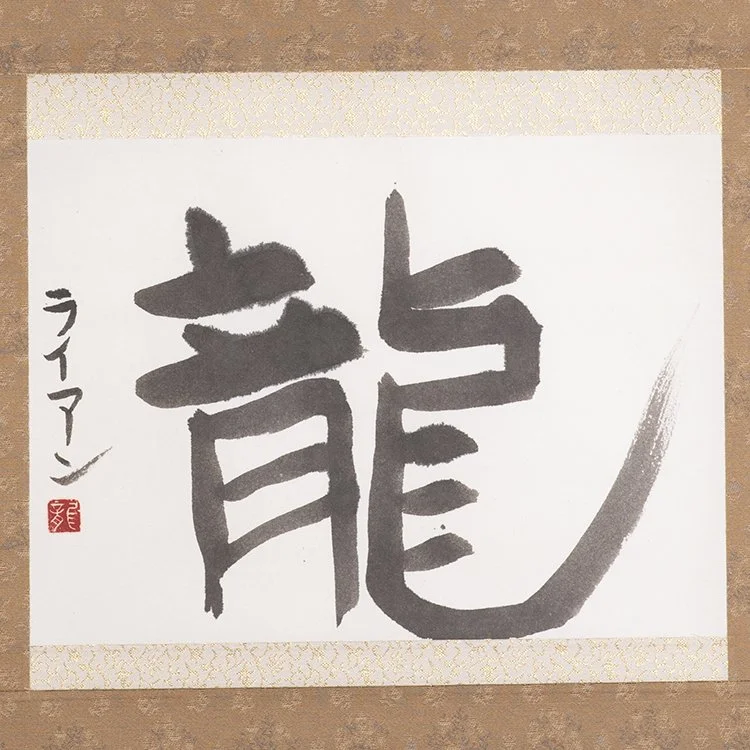 龍
ライアン
龍